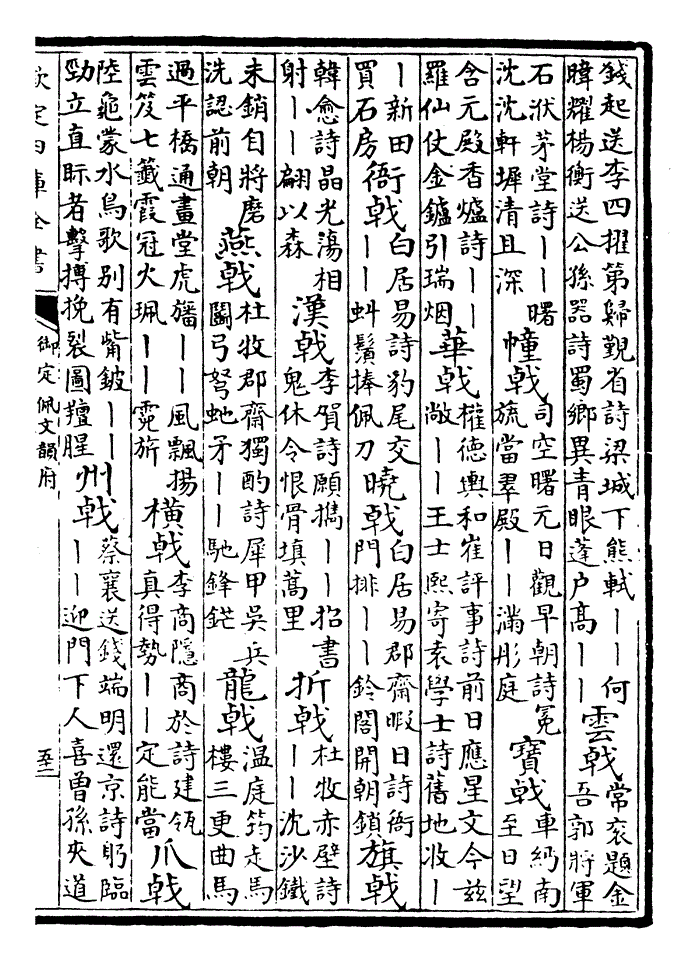 錢起送李四擢第歸覲省詩梁城下熊軾丨丨何
暐耀楊衡送公孫器詩蜀鄉異青眼蓬户髙丨丨
雲戟
常衮題金
吾郭將軍
石洑茅堂詩丨丨曙
沈沈軒墀清且深
幢戟
司空曙元日觀早朝詩冕
旒當羣殿丨丨滿彤庭
寶戟
車縐南
至日望
含元殿香爐詩丨丨
羅仙仗金鑪引瑞烟
華戟
權德輿和崔評事詩前日應星文今兹
敞丨丨王士熙寄袁學士詩舊地收丨
丨新田
買石房
衙戟
白居易詩豹尾交
丨丨蚪鬚捧佩刀
曉戟
白居易郡齋暇日詩衙
門排丨丨鈴閣開朝鎖
旗戟
韓愈詩晶光蕩相
射丨丨翩以森
漢戟
李賀詩願攜丨丨招書
鬼休令恨骨填蒿里
折戟
杜牧赤壁詩
丨丨沈沙鐵
未銷自將磨
洗認前朝
燕戟
杜牧郡齋獨酌詩犀甲吳兵
鬭弓弩虵矛丨丨馳鋒鋩
龍戟
温庭筠走馬
樓三更曲馬
過平橋通畫堂虎旛丨丨風飄揚
雲笈七籤霞冠火珮丨丨霓旂
橫戟
李商隱商於詩建瓴
真得勢丨丨定能當
爪戟
陸龜蒙水鳥歌别有觜鈹丨丨
勁立直眎者擊搏挽裂圖羶腥
州戟
蔡襄送錢端明還京詩躬臨
丨丨迎門下人喜曽孫夾道
欽定四庫全書
御定佩文韻府